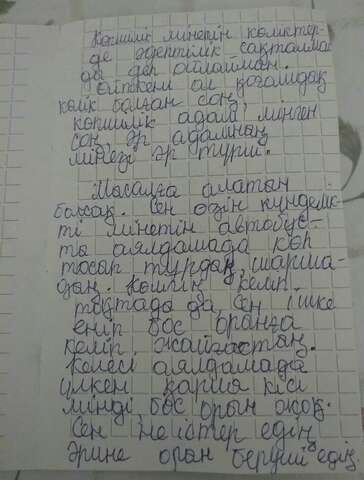 Көпшілік мінетін көліктер-
де әдептілік сақталма
ды деп ойлаймын.
Өйткені ол қоғамдық
көлік болған соң,
көпшілік адам мінген
сон, әр адамның
мінезі әр түрлі.
Мысалға алатын
болсақ. Сен өзін күнделік-
ті мінетін автобус-
та аялдамада көп
тосар тұрдақ, шарша-
дың. Көлігің келіп
тоқтады да, сен ішке
еніп бос орынға
келіп жайғастың.
Келесі аялдамада
үлкен қария кісі
мінді бос орын жоқ.
Сен не істер едің
әрине орын беруші едің.